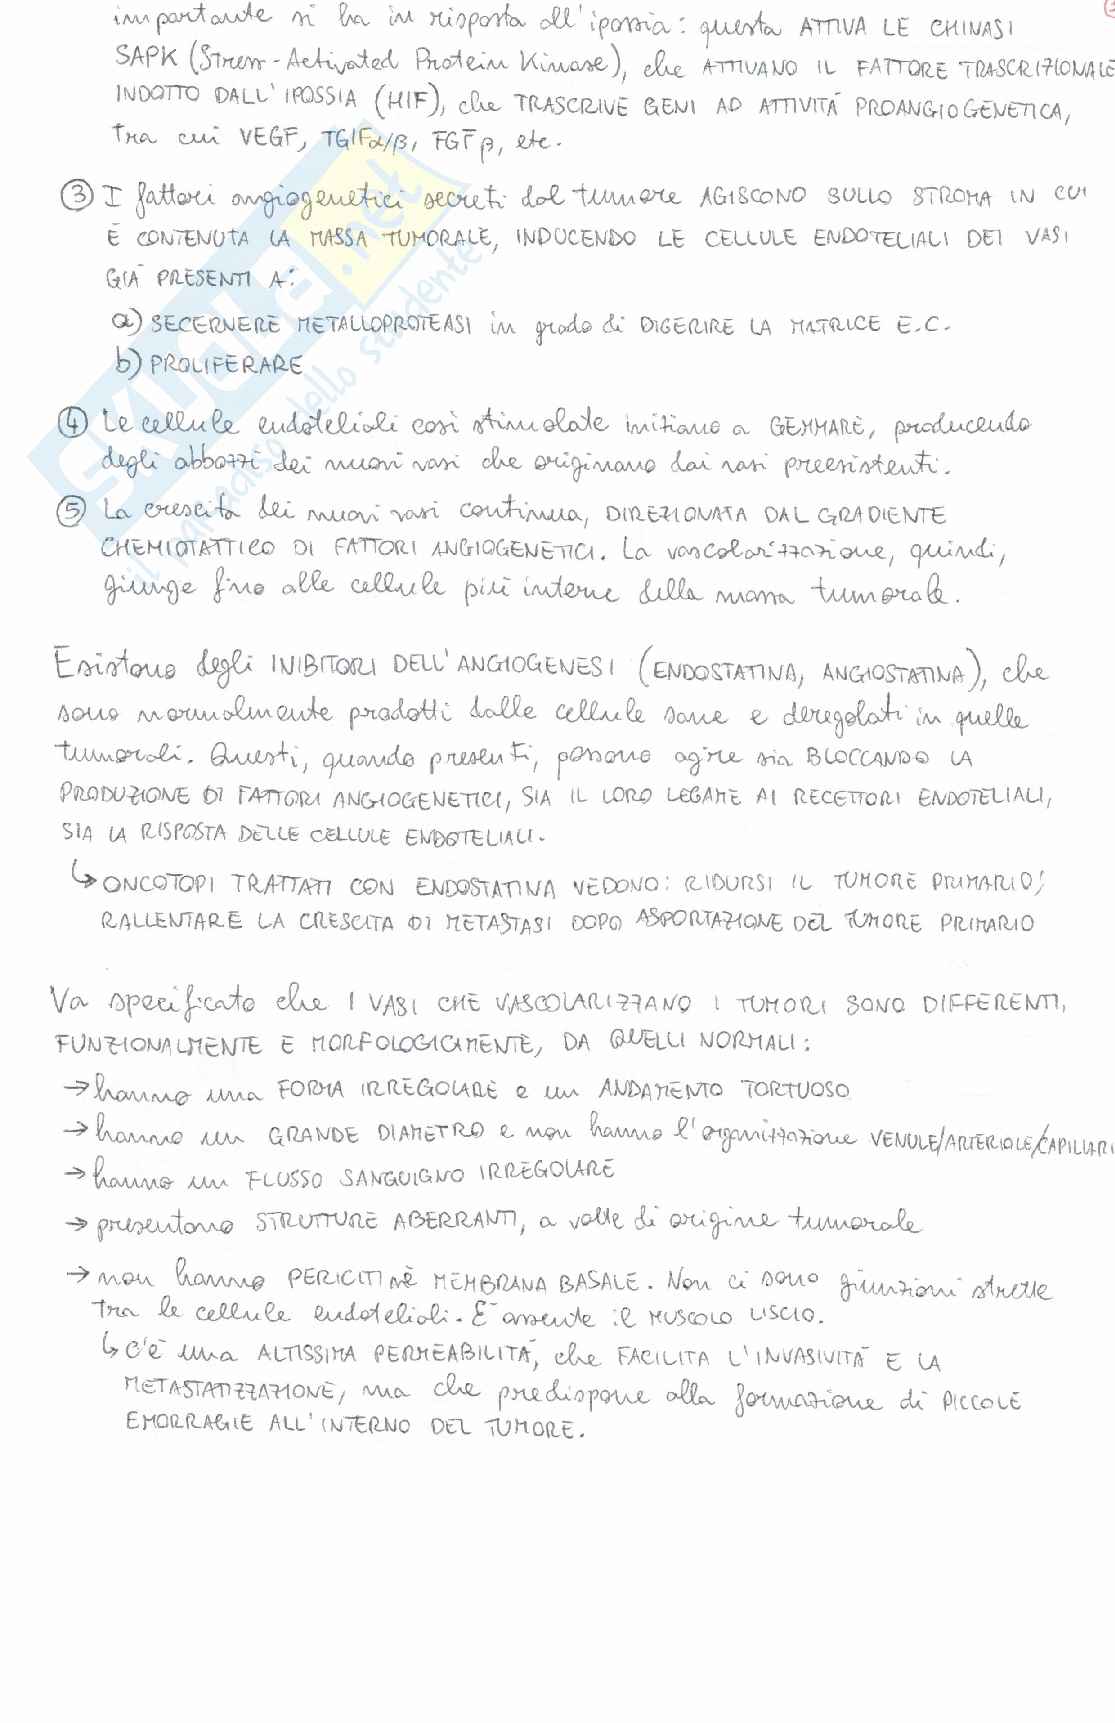 importante si ha in risposta all'ipossia: questa ATTIVA LE CHINASI
SAPK (Stress-Activated Protein Kinase), che ATTIVANO IL FATTORE TRASCRIZIONALE
INDOTTO DALL'IPOSSIA (HIF), che TRASCRIVE GENI AD ATTIVITÀ PROANGIOGENETICA,
tra cui VEGF, TGFα/β, FGFβ, etc.
③ I fattori angiogenetici secreti dal tumore AGISCONO SULLO STROMA IN CUI
È CONTENUTA LA MASSA TUMORALE, INDUCENDO LE CELLULE ENDOTELIALI DEI VASI
GIÀ PRESENTI A:
a) SECERNERE METALLOPROTEASI in grado di DIGERIRE LA MATRICE E.C.
b) PROLIFERARE
④ Le cellule endoteliali così stimolate iniziano a GEMMARE, producendo
degli abbozzi dei nuovi vasi che originano dai vasi preesistenti.
⑤ La crescita dei nuovi vasi continua, DIREZIONATA DAL GRADIENTE
CHEMIOTATTICO DI FATTORI ANGIOGENETICI. La vascolarizzazione, quindi,
giunge fino alle cellule più interne della massa tumorale.
Esistono degli INIBITORI DELL'ANGIOGENESI (ENDOSTATINA, ANGIOSTATINA), che
sono normalmente prodotti dalle cellule sane e deregolati in quelle
tumorali. Questi, quando presenti, possono agire sia BLOCCANDO LA
PRODUZIONE DI FATTORI ANGIOGENETICI, SIA IL LORO LEGAME AI RECETTORI ENDOTELIALI,
SIA LA RISPOSTA DELLE CELLULE ENDOTELIALI.
↳ ONCOTOPI TRATTATI CON ENDOSTATINA VEDONO: RIDURSI IL TUMORE PRIMARIO;
RALLENTARE LA CRESCITA DI METASTASI DOPO ASPORTAZIONE DEL TUMORE PRIMARIO
Va specificato che I VASI CHE VASCOLARIZZANO I TUMORI SONO DIFFERENTI,
FUNZIONALMENTE E MORFOLOGICAMENTE, DA QUELLI NORMALI:
→ hanno una FORMA IRREGOLARE e un ANDAMENTO TORTUOSO
→ hanno un GRANDE DIAMETRO e non hanno l'organizzazione VENULE/ARTERIOLE/CAPILLARI
→ hanno un FLUSSO SANGUIGNO IRREGOLARE
→ presentano STRUTTURE ABERRANTI, a volte di origine tumorale
→ non hanno PERICITI nè MEMBRANA BASALE. Non ci sono giunzioni strette
tra le cellule endoteliali. È assente il MUSCOLO LISCIO.
↳ C'è una ALTISSIMA PERMEABILITÀ, che FACILITA L'INVASIVITÀ E LA
METASTATIZZAZIONE, ma che predispone alla formazione di PICCOLE
EMORRAGIE ALL'INTERNO DEL TUMORE.
SKUOLA.net
il paradiso dello studente